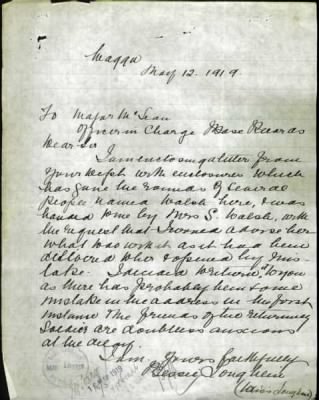 Wagga
May 12. 1919.
To Major McLean
Officer in Charge Base Records
Dear Sir
I am enclosing a letter from
your Dept with enclosures which
has gone the rounds of several
people named Walsh here, & was
handed to me by Mrs S. Walsh, with
the request that I would advise her
what to do with it as it had been
delivered to her & opened by mis-
take. I
as there has probably been some
mistake in the address in the first
instance The friends of the returning
Soldier are doubtless anxious
at the delay.
I am, Yours faithfully
Bessie